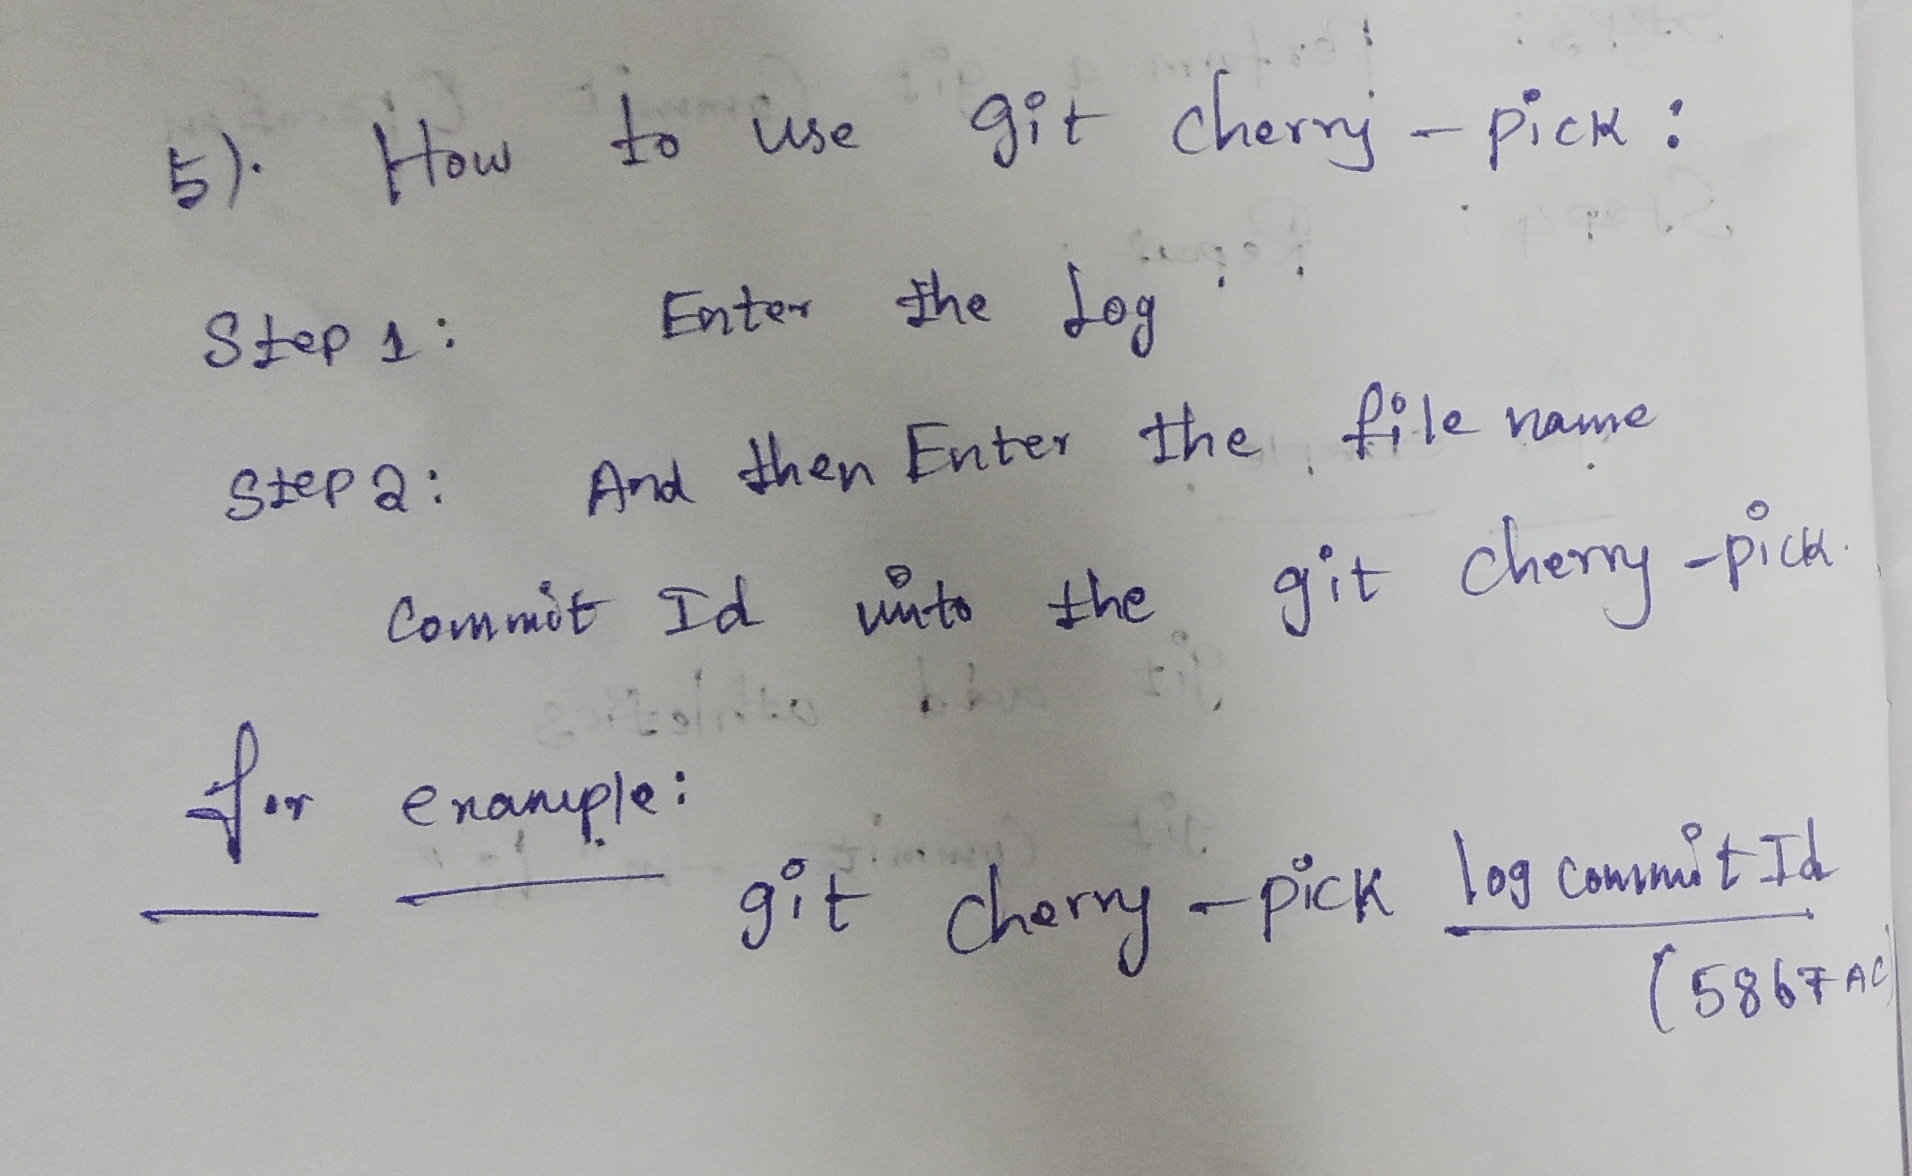 5). How to use git cherry-pick :
Step 1 : Enter the Log
Step 2 : And then Enter the file name
Commit Id into the git cherry-pick.
for example :
git cherry-pick log commit Id
(5867AC)